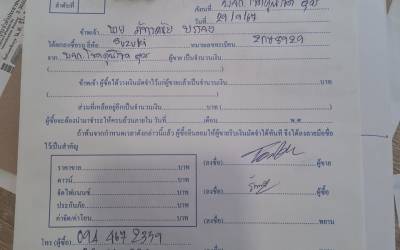 ลำดับที่ เขียนที่
วันที่ 29/9/67
ข้าพเจ้า นาย
ได้ตกลงซื้อรถยี่ห้อ Suzuki หมายเลขทะเบียน
จาก ผู้ขาย เป็นจำนวนเงิน
บาท
ข้าพเจ้า ผู้ซื้อ ได้วางเงินมัดจำไว้แก่ผู้ขายแล้วเป็นจำนวนเงิน บาท
ส่วนที่เหลืออยู่อีกเป็นจำนวนเงิน บาท
ผู้ซื้อจะต้องนำมาชำระให้ครบถ้วนภายใน วันที่ เดือน พ.ศ.
ถ้าพ้นจากกำหนดเวลาดังกล่าวนี้แล้ว ผู้ซื้อยินยอมให้ผู้ขายริบเงินมัดจำได้ทันที จึงได้ลงลายมือชื่อ
ไว้เป็นสำคัญ
ราคาขาย บาท
ดาวน์ บาท
จัดไฟแนนซ์ บาท
ประกันภัย บาท
ค่าจัด/ค่าโอน บาท
(ลงชื่อ) ผู้ขาย
(ลงชื่อ) ผู้ซื้อ
(ลงชื่อ) พยาน
โทร (ผู้ซื้อ) 094 467 2339
(ลงชื่อ)